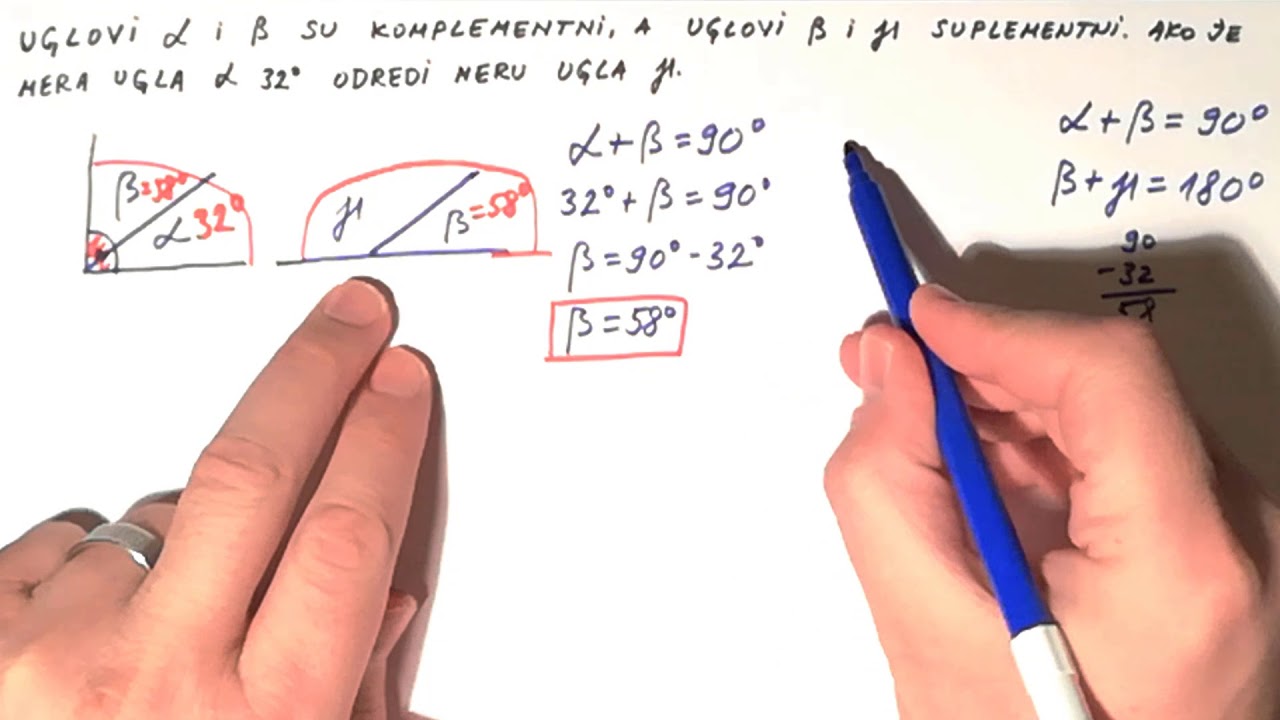 UGLOVI α i β SU KOMPLEMENTNI, A UGLOVI β i γ1 SUPLEMENTNI. AKO JE
MERA UGLA α 32° ODREDI MERU UGLA γ1.
β=58°
α 32°
γ1
β=58°
α+β=90°
32°+β=90°
β=90°-32°
β=58°
α+β=90°
β+γ1=180°
90
-32
58